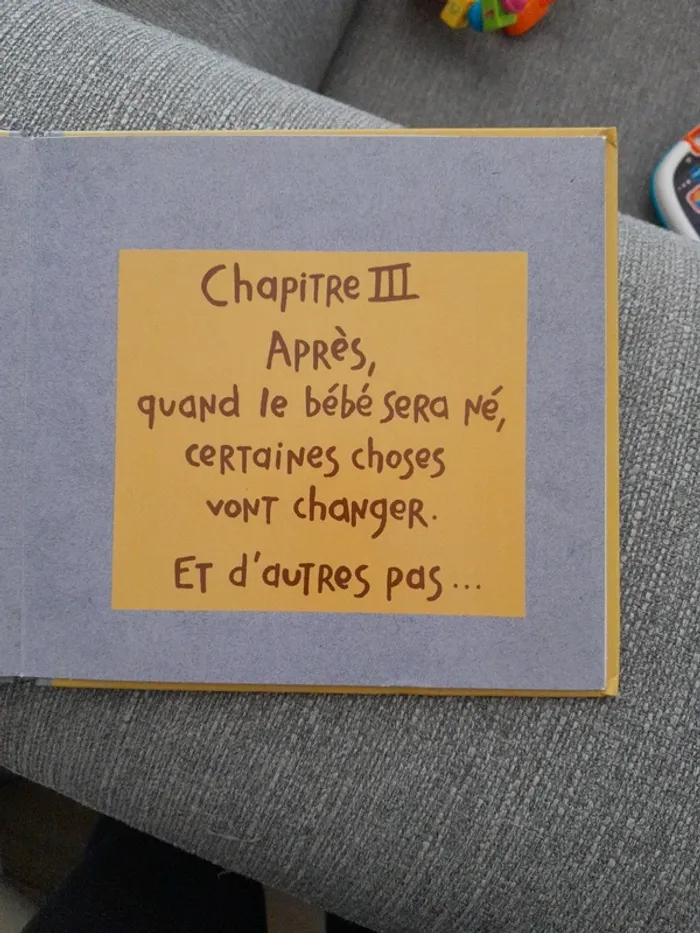 Chapitre III
Après,
quand le bébé sera né,
certaines choses
vont changer.
Et d'autres pas...